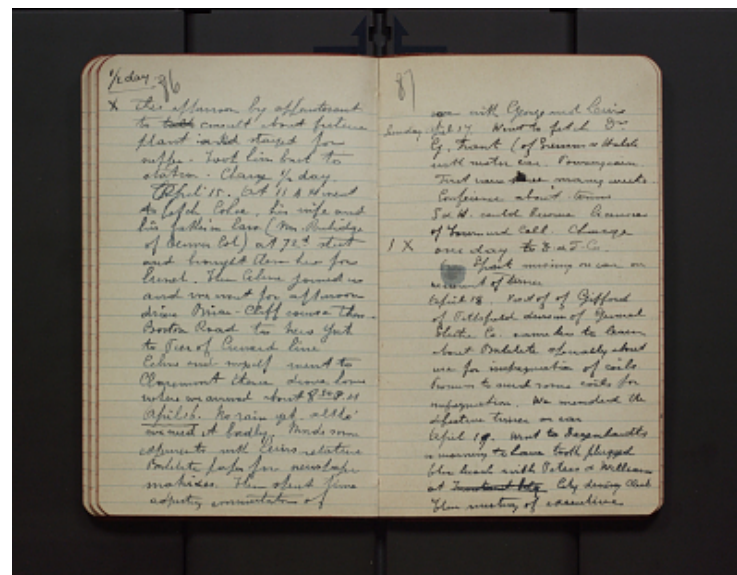 1/2 day 86
X this afternoon by appointment
to consult about future
plant and stayed for
supper. Took him back to
station. Charge 1/2 day
April 15. At 11 A M went
to fetch his wife and
his father in law (Mr.
of Denver Col) at 72d street
and brought them here for
lunch. Then Celine joined us
and we went for afternoon
drive Briar-Cliff course then
Boston Road to New York
to Pier of Cunard line
Celine and myself went to
Claremont drove home
where we arrived about 8:30 P.M
April 16. No rain yet altho'
we need it badly. Made some
experiments with Lewis relative
Bakelite paper for newspaper
matrixes. Then spent time
adjusting commutator of
87
car with George and Lewis
Sunday April 17. Went to fetch Dr
Eg. Frank (of Siemens & Halske
with motor car.
First warm many weeks
Conference about terms
S & H. could become licensees
of Townsend Cell. Charge
1 X one day to
Spent morning on car on
account of
April 18. of Gifford
of Pittsfield division of General
Electric Co. came here to learn
about Bakelite specially about
use for impregnation of coils
Promise to send some coils for
impregnation. We mended the
defective on car
April 19. Went to
in morning to have tooth plugged
then lunch with Peters & Williams
at City Club
Then meeting of executive